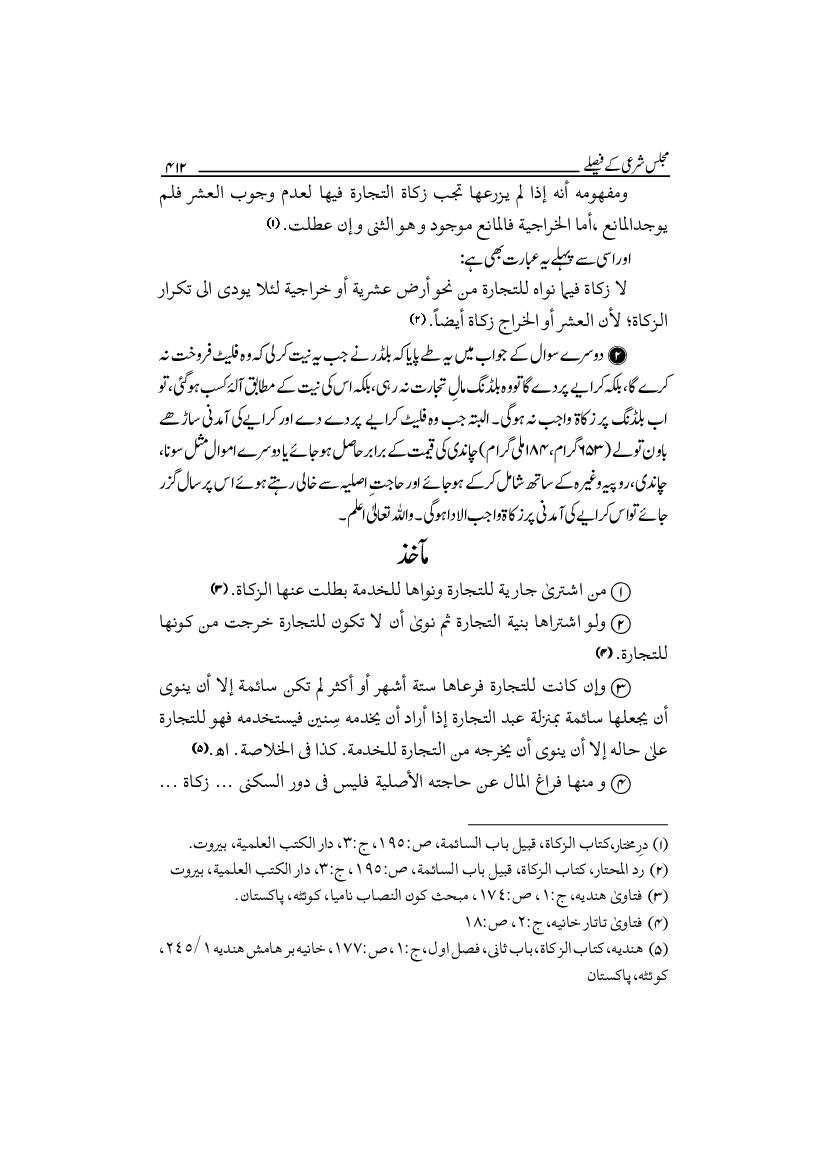 مجلس شرعی کے فیصلے ۴۱۲
ومفهومه أنه إذا لم يزرعها تجب زكاة التجارة فيها لعدم وجوب العشر فلم
يوجدالمانع ،أما الخراجية فالمانع موجود و هو الثنى و إن عطلت. (۱)
اور اسی سے پہلے یہ عبارت بھی ہے:
لا زكاة فيما نواه للتجارة من نحو أرض عشرية أو خراجية لئلا يودى الى تكرار
الزكاة؛ لأن العشر أو الخراج زكاة أيضاً. (۲)
۲ دوسرے سوال کے جواب میں یہ طے پایا کہ بلڈر نے جب یہ نیت کر لی کہ وہ فلیٹ فروخت نہ
کرے گا، بلکہ کرایے پر دے گا تو وہ بلڈنگ مالِ تجارت نہ رہی، بلکہ اس کی نیت کے مطابق آلۂ کسب ہو گئی، تو
اب بلڈنگ پر زکاۃ واجب نہ ہوگی۔ البتہ جب وہ فلیٹ کرایے پر دے دے اور کرایے کی آمدنی ساڑھے
باون تولے (۶۵۳ گرام، ۱۸۴ ملی گرام) چاندی کی قیمت کے برابر حاصل ہو جائے یا دوسرے اموال مثل سونا،
چاندی، روپیہ وغیرہ کے ساتھ شامل کر کے ہو جائے اور حاجتِ اصلیہ سے خالی رہتے ہوئے اس پر سال گزر
جائے تو اس کرایے کی آمدنی پر زکاۃ واجب الادا ہوگی۔ واللہ تعالیٰ اعلم۔
مآخذ
۱ من اشترىٰ جارية للتجارة ونواها للخدمة بطلت عنها الزكاة. (۳)
۲ ولو اشتراها بنية التجارة ثم نوىٰ أن لا تكون للتجارة خرجت من كونها
للتجارة. (۴)
۳ وإن كانت للتجارة فرعاها ستة أشهر أو أكثر لم تكن سائمة إلا أن ينوى
أن يجعلها سائمة بمنزلة عبد التجارة إذا أراد أن يخدمه سِنين فيستخدمه فهو للتجارة
علىٰ حاله إلا أن ينوى أن يخرجه من التجارة للخدمة. كذا فى الخلاصة. اھ.(۵)
۴ و منها فراغ المال عن حاجته الأصلية فليس فى دور السكنى ... زكاة ...
(۱) درِ مختار، کتاب الزكاة، قبيل باب السائمة، ص:۱۹۵، ج:۳، دار الكتب العلمية، بيروت.
(۲) رد المحتار، كتاب الزكاة، قبيل باب السائمة، ص:۱۹۵، ج:۳، دار الكتب العلمية، بيروت
(۳) فتاوىٰ هنديه، ج:۱، ص:۱۷٤، مبحث كون النصاب ناميا، كوئٹه، پاكستان.
(۴) فتاوىٰ تاتار خانيه، ج:۲، ص:۱۸
(۵) هنديه، كتاب الزكاة، باب ثانى، فصل اول، ج:۱، ص:۱۷۷، خانيه بر هامش هنديه ۱/۲٤٥،
كوئٹه، پاكستان